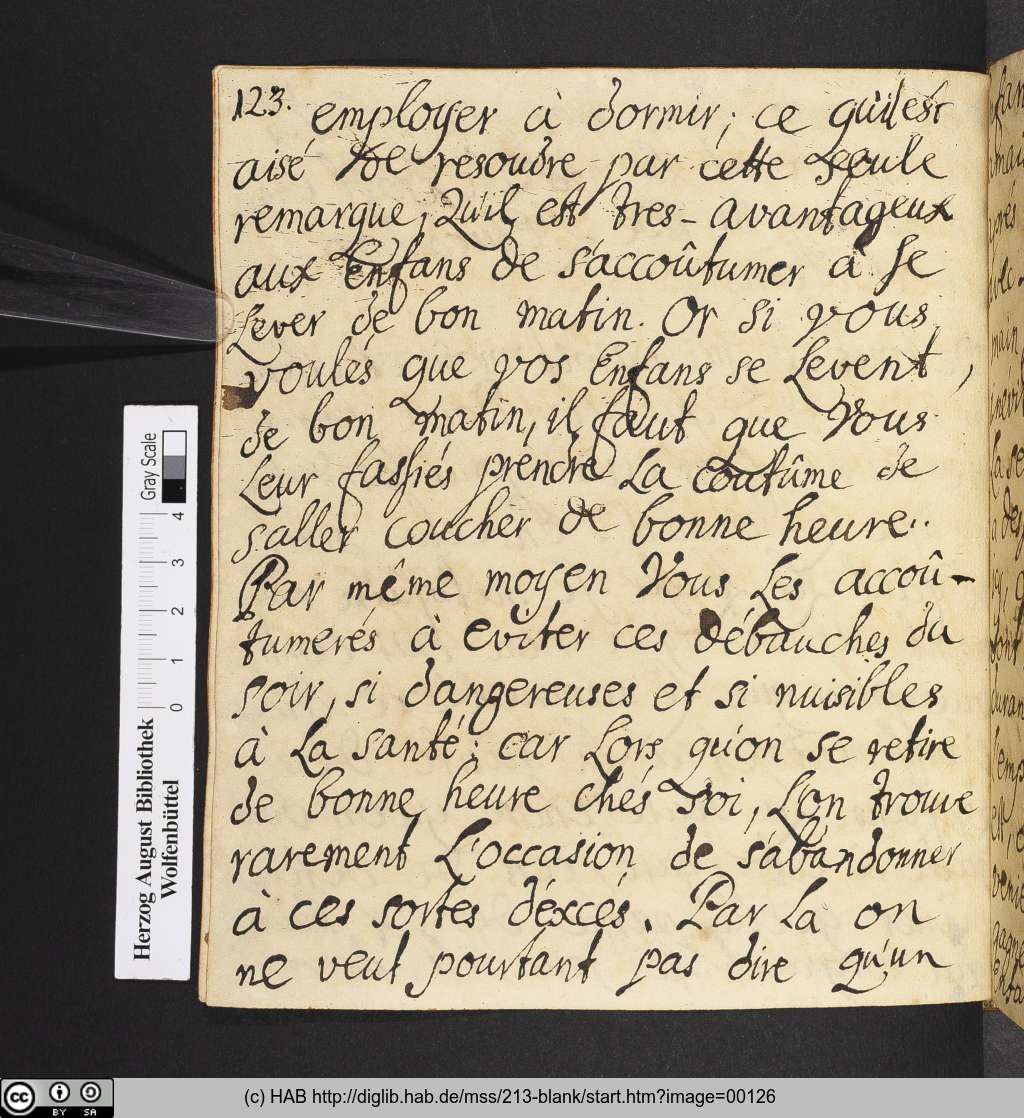 123. employer à dormir; ce qu'il est
aisé de resoudre par cette seule
remarque, Qu'il est tres-avantageux
aux Enfans de s'accoûtumer à se
Lever de bon matin. Or si vous
voulés que vos Enfans se Levent,
de bon matin, il faut que Vous
Leur fassiés prendre La coutûme de
s'aller coucher de bonne heure..
Par même moyen Vous Les accoû-
tumerés à eviter ces débauches du
soir, si dangereuses et si nuisibles
à La santé; car Lors qu'on se retire
de bonne heure chés soi, L'on trouve
rarement L'occasion de s'abandonner
à ces sortes d'éxcés. Par La on
ne veut pourtant pas dire qu'un
Herzog August Bibliothek
Wolfenbüttel
0 1 2 3 4
Gray Scale
cc BY SA
(c) HAB http://diglib.hab.de/mss/213-blank/start.htm?image=00126